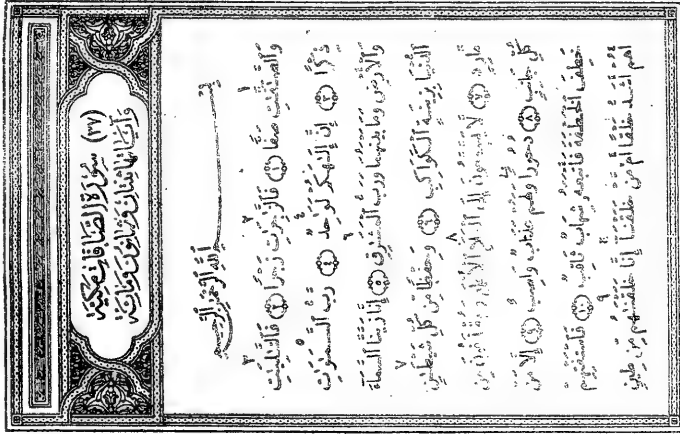 (٣٧) سُورَةُ الصَّافَّاتِ مَكِّيَّة
وَآيَاتُهَا ثِنْتَانِ وَثَمَانُونَ وَمِائَة
بِسْمِ ٱللَّهِ ٱلرَّحْمَٰنِ ٱلرَّحِيمِ
وَٱلصَّٰٓفَّٰتِ صَفًّا (١) فَٱلزَّٰجِرَٰتِ زَجْرًا (٢) فَٱلتَّٰلِيَٰتِ
ذِكْرًا (٣) إِنَّ إِلَٰهَكُمْ لَوَٰحِدٌ (٤) رَّبُّ ٱلسَّمَٰوَٰتِ
وَٱلْأَرْضِ وَمَا بَيْنَهُمَا وَرَبُّ ٱلْمَشَٰرِقِ (٥) إِنَّا زَيَّنَّا ٱلسَّمَآءَ
ٱلدُّنْيَا بِزِينَةٍ ٱلْكَوَاكِبِ (٦) وَحِفْظًا مِّن كُلِّ شَيْطَٰنٍ
مَّارِدٍ (٧) لَّا يَسَّمَّعُونَ إِلَى ٱلْمَلَإِ ٱلْأَعْلَىٰ وَيُقْذَفُونَ مِن
كُلِّ جَانِبٍ (٨) دُحُورًا وَلَهُمْ عَذَابٌ وَاصِبٌ (٩) إِلَّا مَنْ
خَطِفَ ٱلْخَطْفَةَ فَأَتْبَعَهُۥ شِهَابٌ ثَاقِبٌ (١٠) فَٱسْتَفْتِهِمْ
أَهُمْ أَشَدُّ خَلْقًا أَم مَّنْ خَلَقْنَآ إِنَّا خَلَقْنَٰهُم مِّن طِينٍ